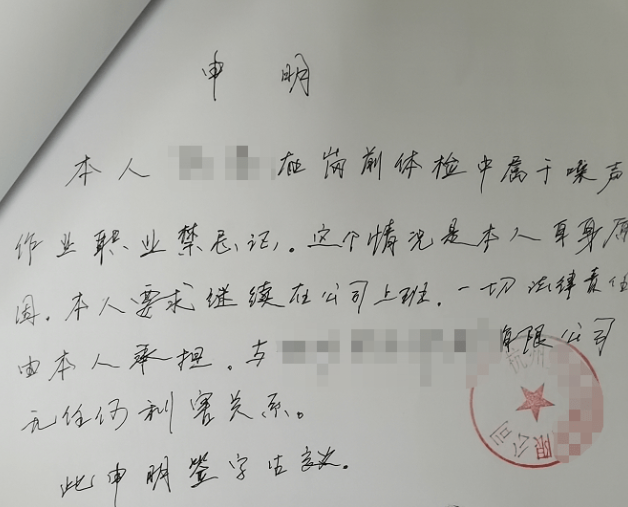 申 明
本人 在岗前体检中属于噪声
作业职业禁忌证。这个情况是本人自身原
因。本人要求继续在公司上班。一切法律责任
由本人承担。与 有限公司
无任何利害关系。
此申明签字
杭州
限公司